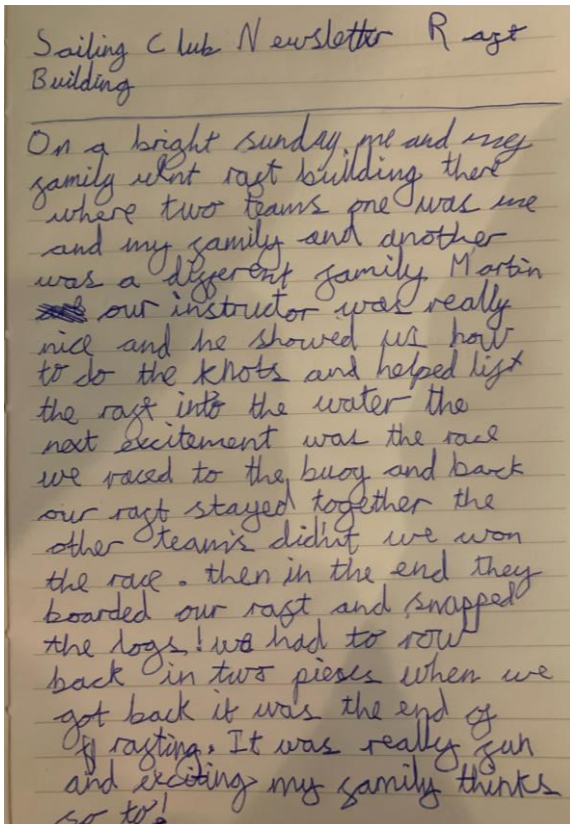 Sailing Club Newsletter Raft
Building
On a bright sunday, me and my
family went raft building there
where two teams one was me
and my family and another
was a different family Martin
our instructor was really
nice and he showed us how
to do the knots and helped lift
the raft into the water the
next excitement was the race
we raced to the buoy and back
our raft stayed together the
other team's didn't we won
the race. then in the end they
boarded our raft and snapped
the logs! we had to row
back in two pieses when we
got back it was the end of
rafting. It was really fun
and exciting my family thinks
so to!